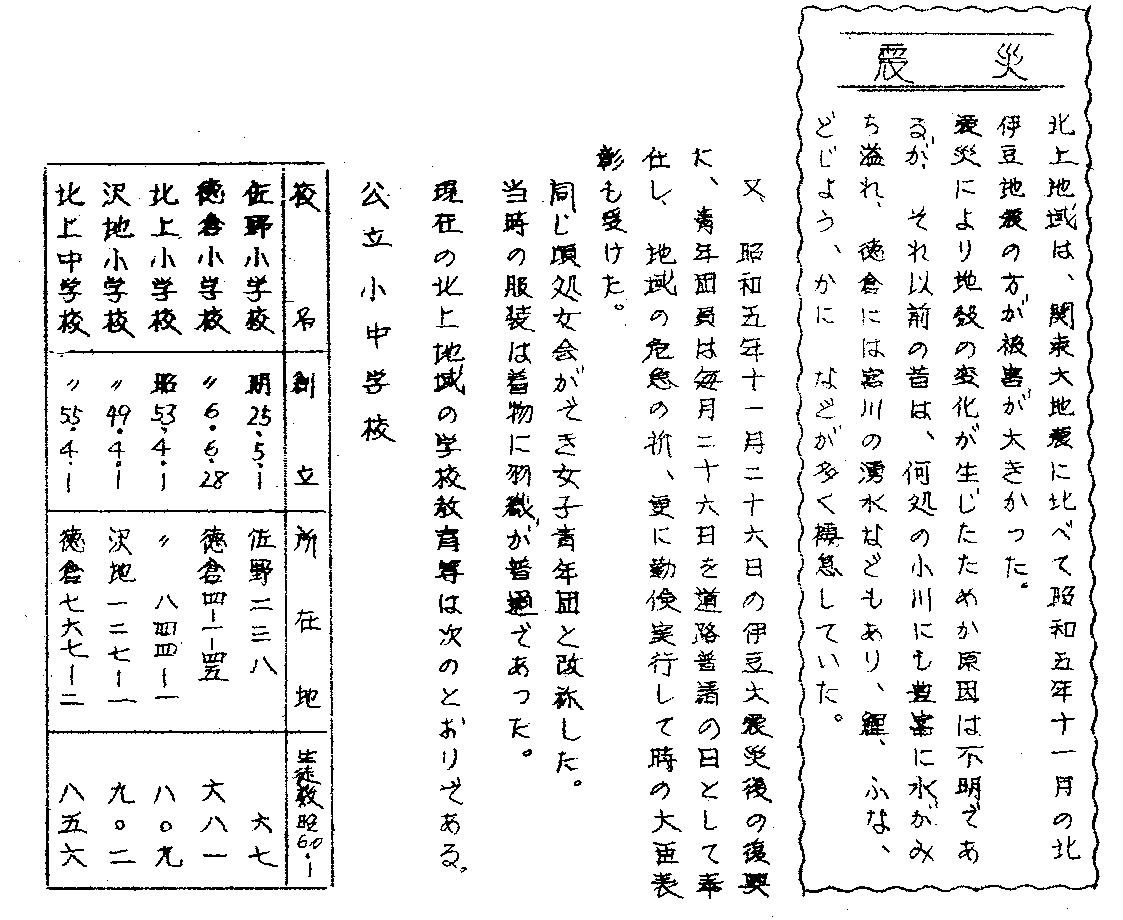 震災
北上地域は、関東大地震に比べて昭和五年十一月の北
伊豆地震の方が被害が大きかった。
震災により地殻の変化が生じたためか原因は不明であ
るが、それ以前の昔は、何処の小川にも豊富に水がみ
ち溢れ、徳倉には宮川の湧水などもあり、鯉、ふな、
どじょう、かに などが多く棲息していた。
又、昭和五年十一月二十六日の伊豆大震災後の復興
に、青年団員は毎月二十六日を道路普請の日として奉
仕し、地域の危急の折、更に勤倹実行して時の大臣表
彰も受けた。
同じ頃処女会ができ女子青年団と改称した。
当時の服装は着物に羽織が普通であった。
現在の北上地域の学校教育等は次のとおりである。
公立小中学校
校名 創立 所在地 生徒数昭60.1
佐野小学校 明25.5.1 佐野二三八 六七
徳倉小学校 〃6.6.28 徳倉四ー一ー四五 六八一
北上小学校 昭53.4.1 〃 八四四ー一 八〇九
沢地小学校 〃49.4.1 沢地一二七ー一 九〇二
北上中学校 〃55.4.1 徳倉七六七ー二 八五六